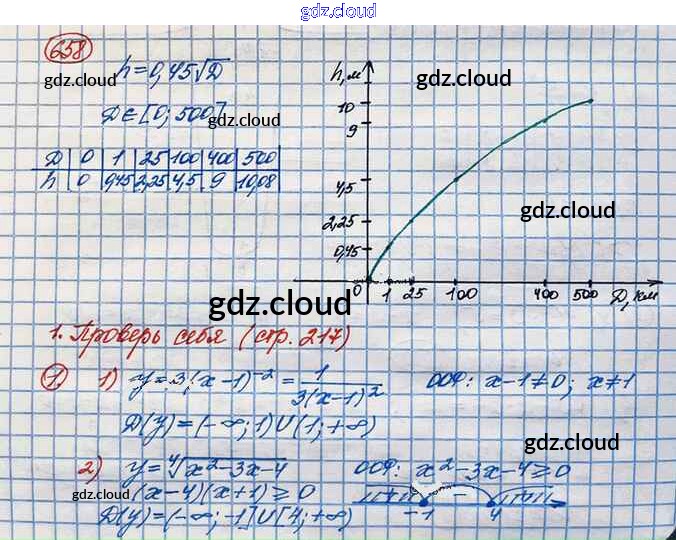 gdz.cloud
658
h=0,45√D
D∈[0; 500]
D 0 1 25 100 400 500
h 0 0,45 2,25 4,5 9 10,08
h, м
10
9
4,5
2,25
0,45
0 1 25 100 400 500 D, км
gdz.cloud
gdz.cloud
gdz.cloud
gdz.cloud
gdz.cloud
1. Проверь себя (стр. 217)
1. 1) y=3(x-1)⁻² = 1/3(x-1)² ООФ: x-1≠0; x≠1
D(y)=(-∞;1)U(1;+∞)
gdz.cloud
2) y=⁴√x²-3x-4 ООФ: x²-3x-4⩾0
gdz.cloud
(x-4)(x+1)⩾0
+ − +
-1 4
D(y)=(-∞;-1]U[4;+∞)
gdz.cloud